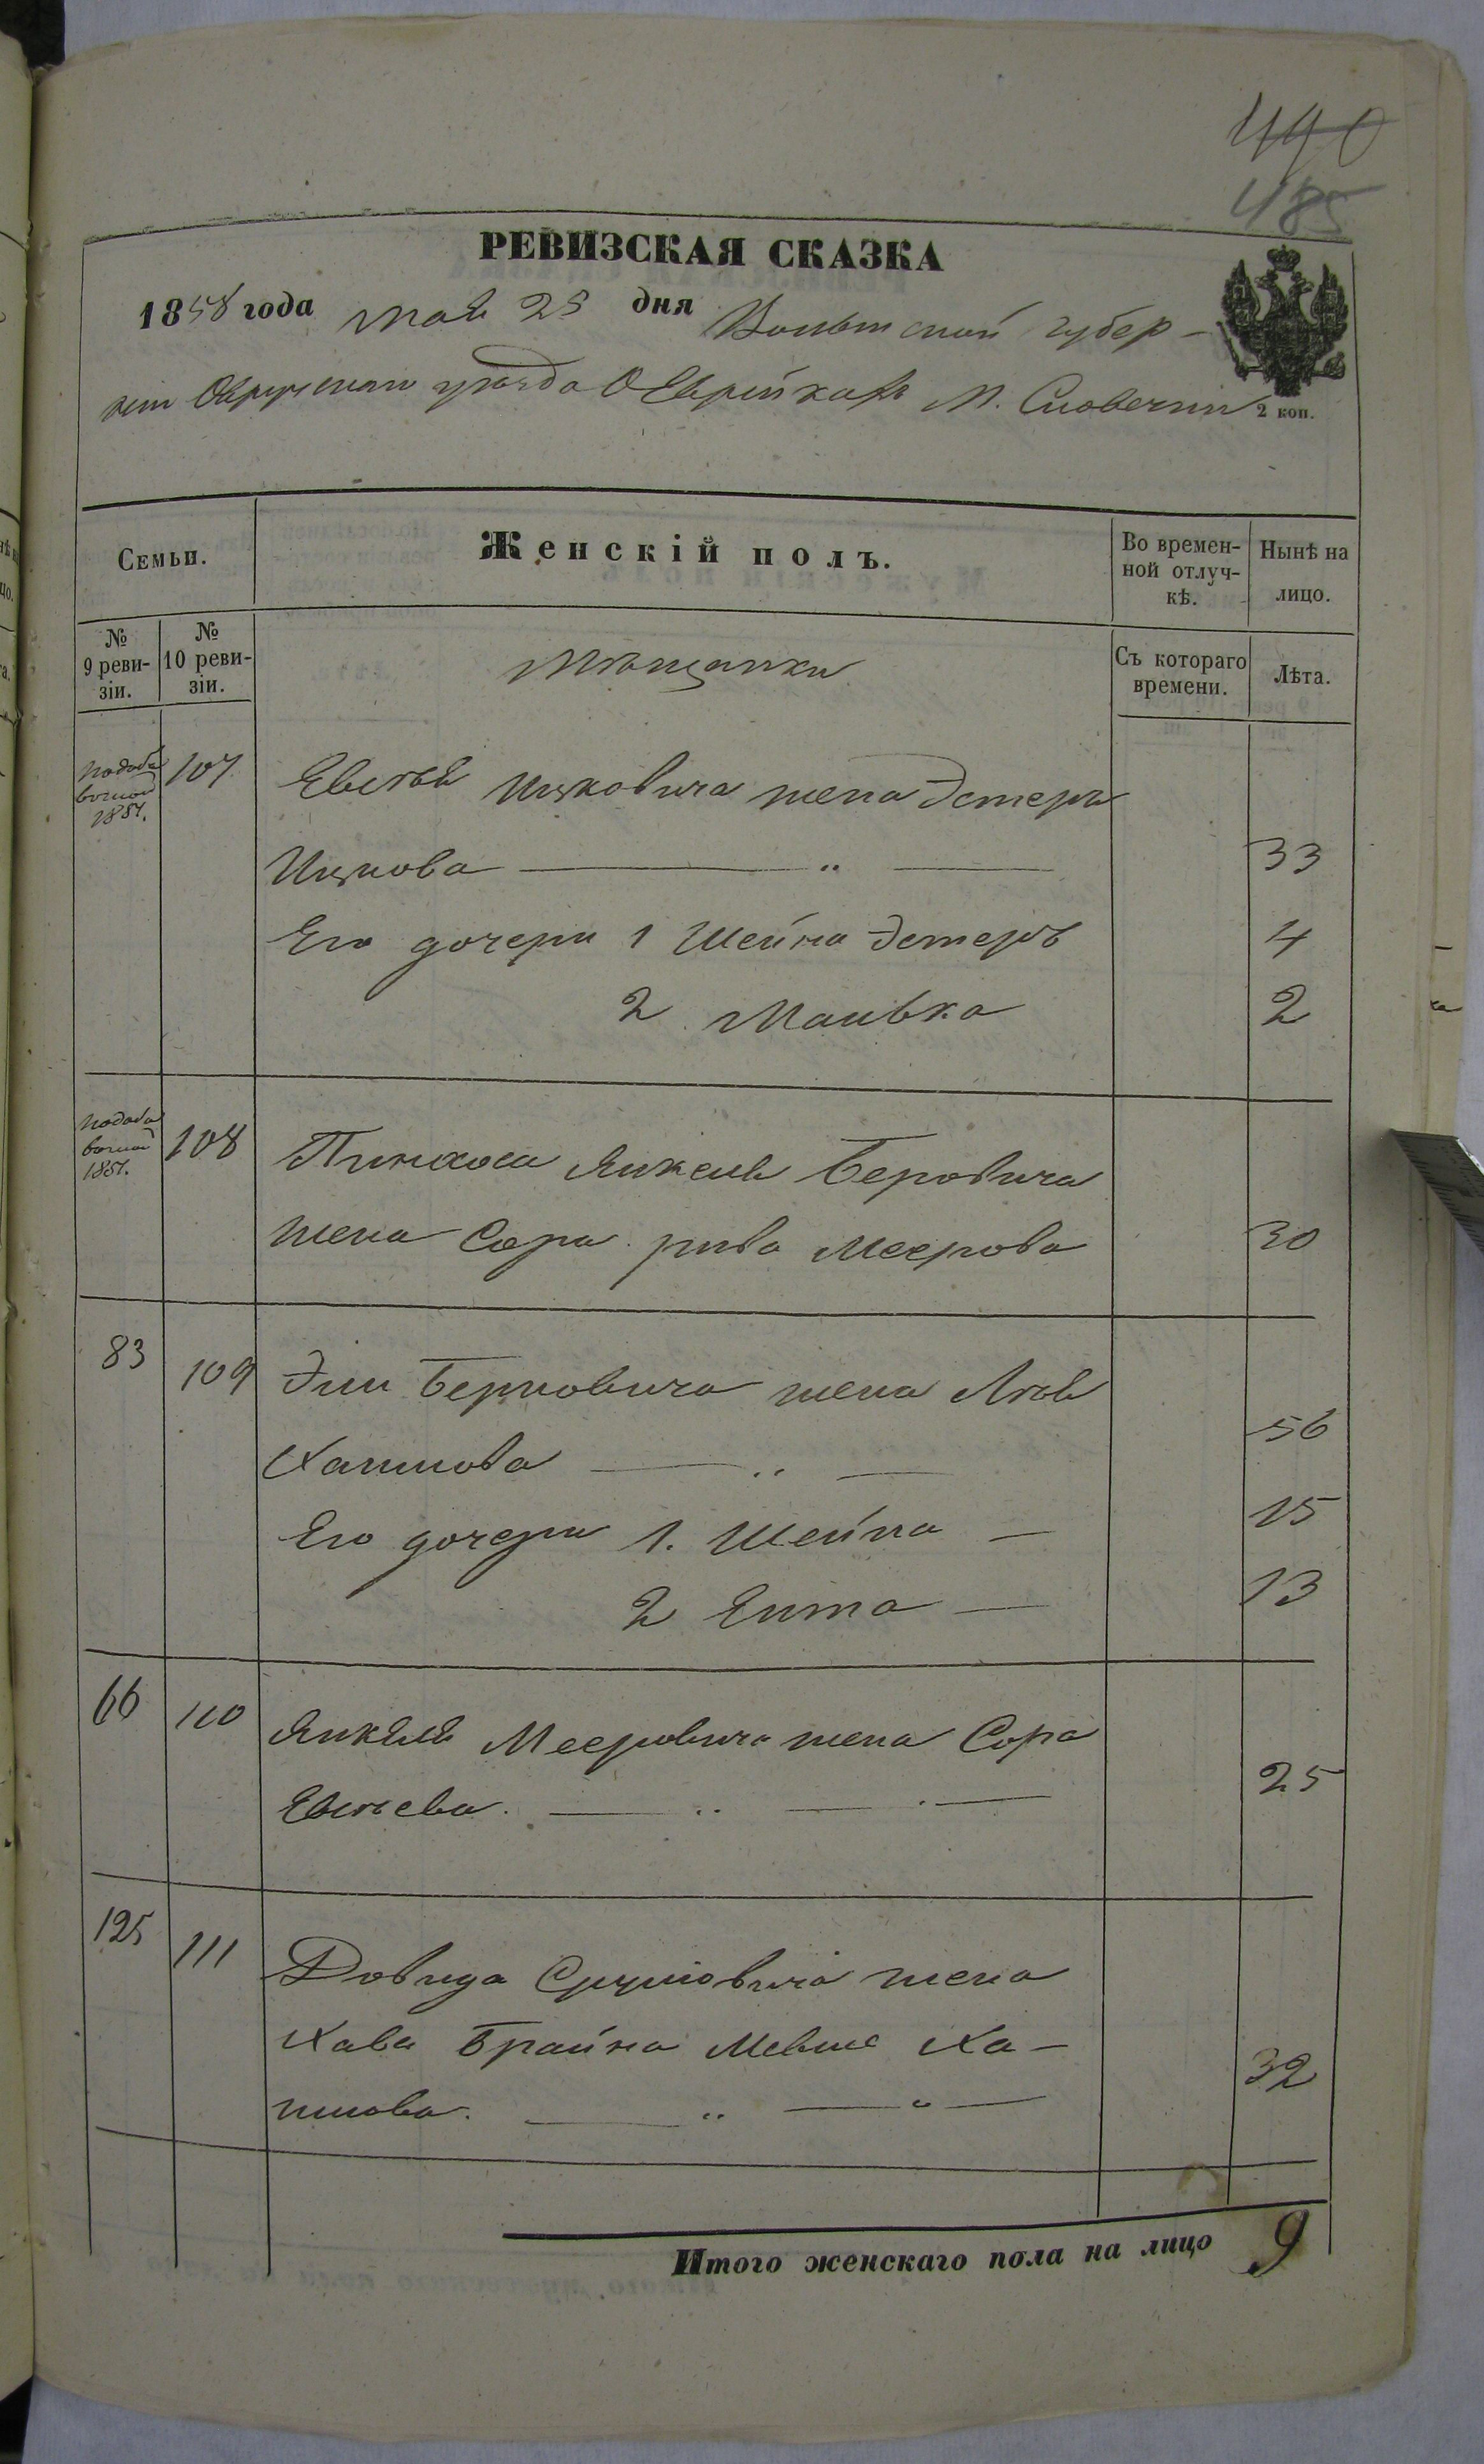 490
485
РЕВИЗСКАЯ СКАЗКА
1858 года мая 25 дня Волынской губер-
ніи Овручскаго уѣзда О Еврейкахъ М. Словечны
2 коп.
Семьи.
Женскій полъ.
Во времен-
ной отлуч-
кѣ.
Нынѣ на
лицо.
№
9 реви-
зіи.
№
10 реви-
зіи.
Мѣщанки
Съ котораго
времени.
Лѣта.
107 Ицковича жена Эстеръ
Ицкова 33
Его дочери 1 Шейна Эстеръ 4
2 Малька 2
1851.
108 Пинхоса Янкеля Беровича
жена Сора рива Меерова 30
83 109 Эли Берковича жена Лея
Хаимова 56
Его дочери 1. Шейна 15
2 Ента 13
66 110 Янкеля Мееровича жена Сора
25
125 111 Довида Сруловича жена
Хава Брайна Мевше Ха-
имова. 32
Итого женскаго пола на лицо 9